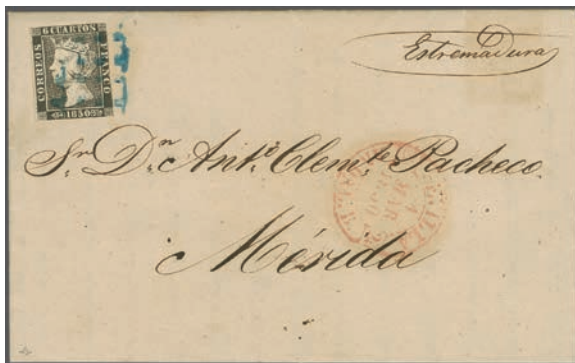 6 CUARTOS
CORREOS
FRANCO
1850
Estremadura
Sr. Dn. Anto. Clemte. Pacheco.
MAR
Mérida